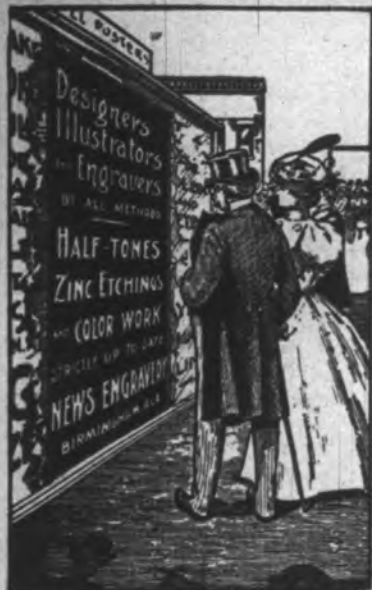 LL POSTERS
Designers
Illustrators
AND Engravers
BY ALL METHODS
HALF-TONES
ZINC ETCHINGS
AND COLOR WORK
STRICTLY UP TO DATE
NEWS ENGRAVERY
BIRMINGHAM, ALA